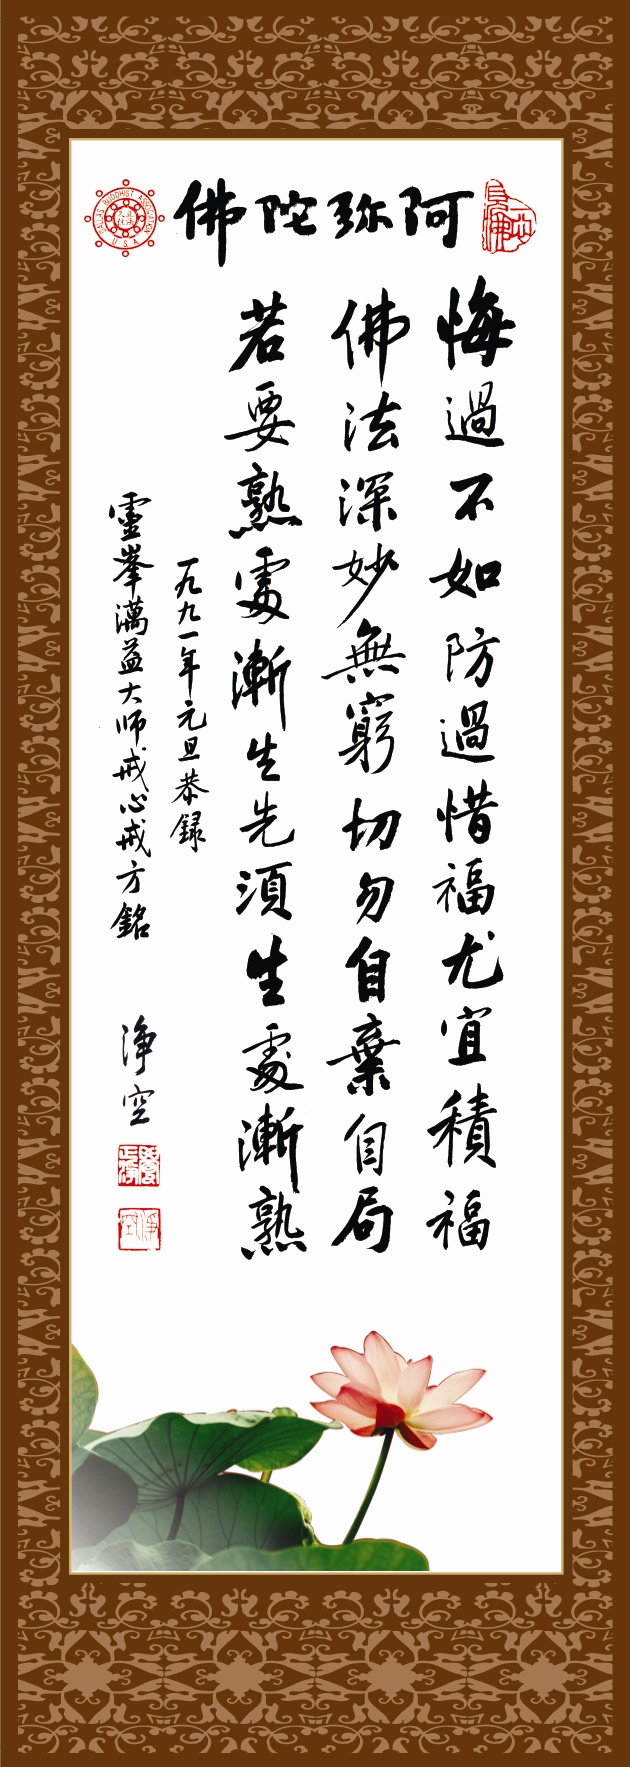 阿弥陀佛
DALLAS BUDDHIST ASSOCIATION
USA
悔過不如防過惜福尤宜積福
佛法深妙無窮切勿自棄自局
若要熟處漸生先須生處漸熟
一九九一年元旦恭録
靈峯澫益大师戒心戒方銘
淨空